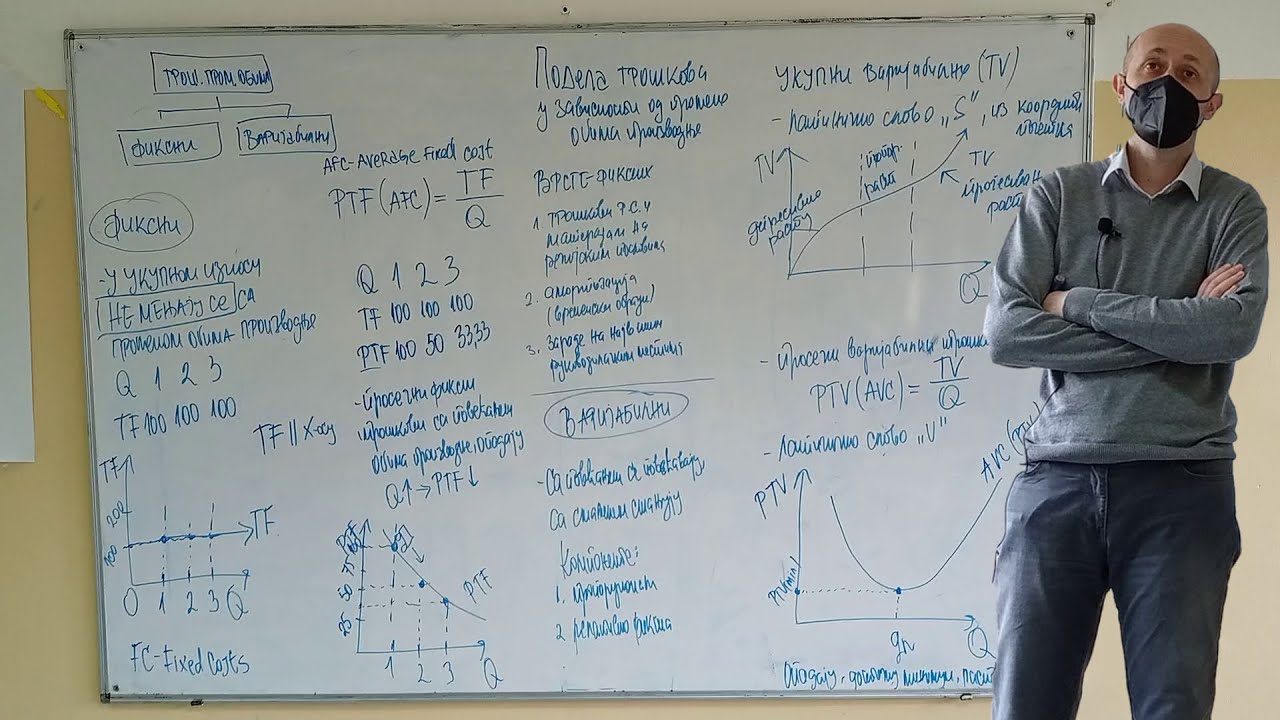 ТРОШ. ПРОМ. ОБИМА
ФИКСНИ
ВАРИЈАБИЛНИ
ФИКСНИ
- У УКУПНОМ ИЗНОСУ
НЕ МЕЊАЈУ СЕ СА
ПРОМЕНОМ ОБИМА ПРОИЗВОДЊЕ
Q 1 2 3
TF 100 100 100
TF || X-осу
TF
200
100
TF
0 1 2 3 Q
FC-Fixed Costs
AFC-Average Fixed cost
PTF (AFC) = TF
Q
Q 1 2 3
TF 100 100 100
PTF 100 50 33,33
- Просечни фиксни
трошкови са повећањем
обима производње, опадају
Q↑ → PTF↓
50
25
PTF
1 2 3 Q
Подела трошкова
у зависности од промене
обима производње
ВРСТЕ-ФИКСНИХ
1. Трошкови Р.С. и
материјала на
режијским пословима
2. Амортизација
(временски обрачун)
3. Зараде на највишим
руководилачким местима
ВАРИЈАБИЛНИ
- Са повећањем се повећавају
Са смањењем смањују
Компоненте:
1.
2. релативно фиксна
УКУПНИ Варијабилни (TV)
- Латинично слово „S", из координ
TV
дегресивно
расту
пропор.
раст
TV
Q
- Просечни варијабилни трошк
PTV (AVC) = TV
Q
- Латинично слово „V"
PTV
PTV(min)
AVC
qn
Q
Опадају, достижу минимум, раст